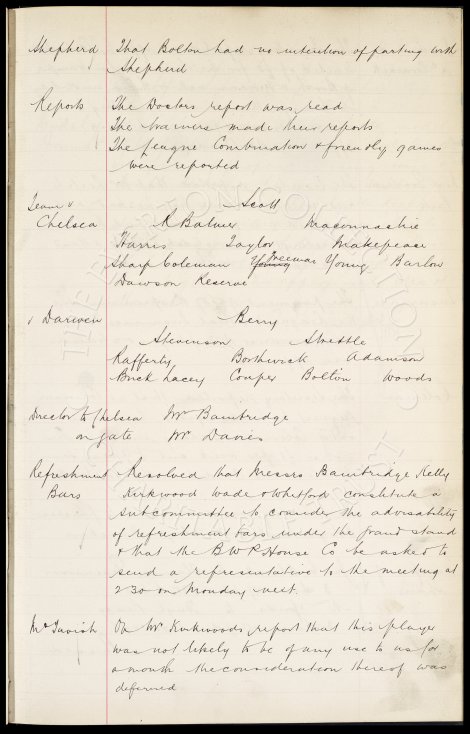 Shepherd That Bolton had no intention of parting with
Shepherd
Reports The Doctors report was read
The trainers made their reports
The League Combination & friendly games
were reported
Team v Scott
Chelsea R Balmer Maconnachie
Harris Taylor Makepeace
Sharp Coleman Young Freeman Young Barlow
Dawson Reserve
v Darwen Berry
Stevenson Strettle
Rafferty Borthwick Adamson
Birch Lacey Couper Bolton Woods
Director to Chelsea Mr Bainbridge
on gate Mr Davies
Refreshment Resolved that Messrs Bainbridge Kelly
Bars Kirkwood Wade & Whitford constitute a
subcommittee to consider the advisability
of refreshment bars under the grand stand
& that the B W P House Co be asked to
send a representative to the meeting at
2 30 on Monday next.
McTavish On Mr Kirkwoods report that this player
was not likely to be of any use to us for
a month the consideration thereof was
deferred